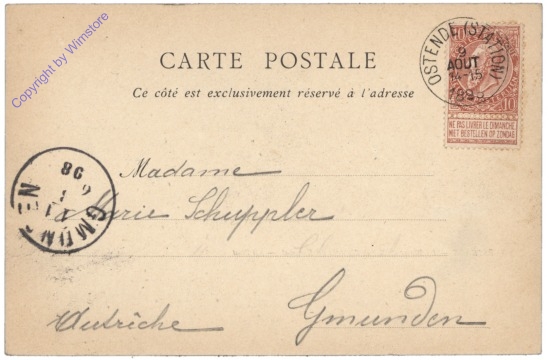 Copyright by Wimstore
CARTE POSTALE
Ce côté est exclusivement réservé à l'adresse
OSTENDE (STATION)
9
AOUT
14-15
189
10
NE PAS LIVRER LE DIMANCHE
NIET BESTELLEN OP ZONDAG
Madame
Marie Schuppler
Gmunden
Autriche
GMUNDEN
98